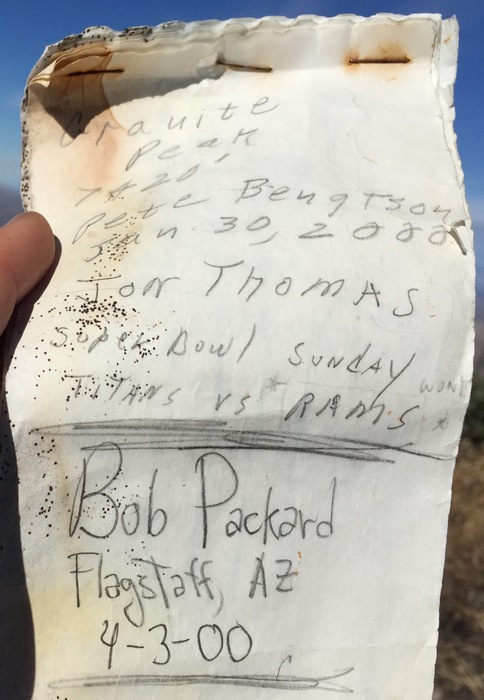 Granite
Peak
7420'
Pete Bengtson
Jan 30, 2000
Jon Thomas
Super Bowl Sunday
TITANS vs * RAMS * won
Bob Packard
Flagstaff, AZ
4-3-00